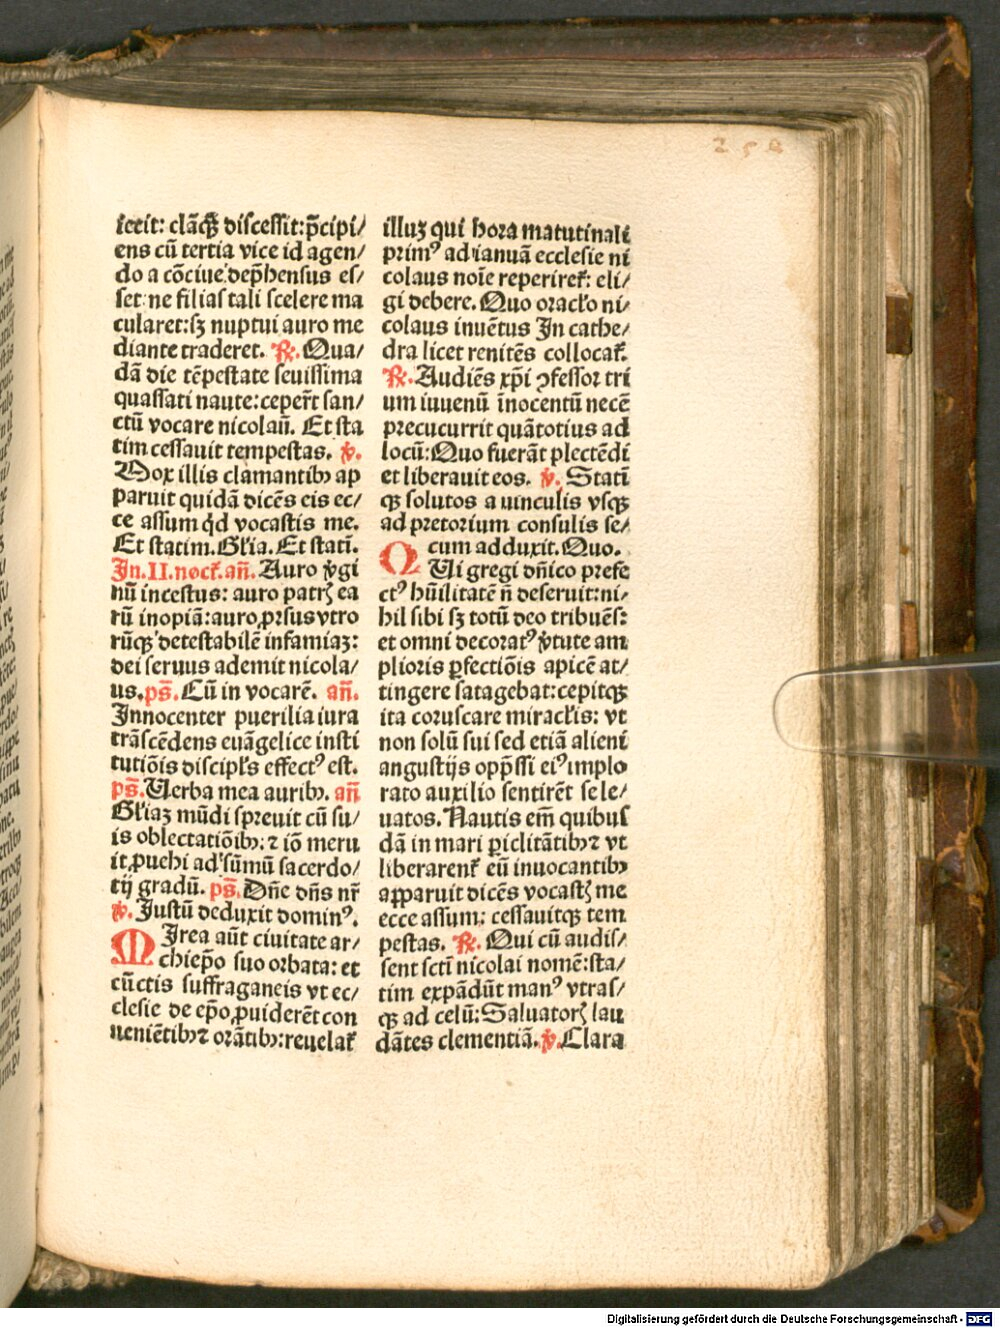 258
iecit: clāqꝫ discessit: p̄cipi/
ens cū tertia vice id agen/
do a cōciue dep̄hensus es/
set: ne filias tali scelere ma
cularet: sꝫ nuptui auro me
diante traderet. ℟. Qua/
dā die tēpestate seuissima
quassati naute: ceper̄t san/
ctū vocare nicolaū. Et sta
tim cessauit tempestas. ℣.
Mox illis clamantibꝫ ap
paruit quidā dicēs eis ec/
ce assum q̇d vocastis me.
Et statim. Gl'ia. Et statī.
In. II. noct̄. an̄. Auro v̇gi
nū incestus: auro patrꝫ ea
rū inopiā: auro ꝓrsus vtro
rūqꝫ detestabilē infamiaꝫ:
dei seruus ademit nicola/
us. ps̄. Cū in vocarē. an̄.
Innocenter puerilia iura
trāscēdens euāgelice insti
tutiōis discipl's effectꝰ est.
ps̄. Uerba mea auribꝫ. an̄
Gl'iaꝫ mūdi spreuit cū su/
is oblectatiōibꝫ: ⁊ iō meru
it ꝓuehi ad sūmū sacerdo/
tij gradū. ps̄. Dn̄e dn̄s nr̄
℣. Justū deduxit dominꝰ.
MIrea aūt ciuitate ar/
chiep̄o suo orbata: et
cūctis suffraganeis vt ec/
clesie de ep̄o ꝓuiderēt con
ueniētibꝫ ⁊ orātibꝫ: reuelat̄
illuꝫ qui hora matutinali
primꝰ ad ianuā ecclesie ni
colaus noīe reperiret̄: eli/
gi debere. Quo orac'lo ni/
colaus inuētus In cathe/
dra licet renitēs collocat̄.
℟. Audiēs xp̄i ꝯfessor tri
um iuuenū īnocentū necē
precucurrit quātotius ad
locū: Quo fuerāt plectēdi
et liberauit eos. ℣. Statī
qꝫ solutos a uinculis vsqꝫ
ad pretorium consulis se/
cum adduxit. Quo.
QUi gregi dn̄ico prefe
ctꝰ hūilitatē n̄ deseruit: ni/
hil sibi sꝫ totū deo tribuēs:
et omni decoratꝰ v̇tute am
plioris ꝑfectiōis apicē at/
tingere satagebat: cepitqꝫ
ita coruscare mirac'lis: vt
non solū sui sed etiā alieni
angustijs opp̄ssi eiꝰ implo
rato auxilio sentirēt se le/
uatos. Nautis em̄ quibus
dā in mari ꝑiclitātibꝫ ⁊ vt
liberarent̄ eū inuocantibꝫ
apparuit dicēs vocastꝫ me
ecce assum: cessauitqꝫ tem
pestas. ℟. Qui cū audis/
sent sctī nicolai nomē: sta/
tim expādūt manꝰ vtras/
qꝫ ad celū: Saluatorꝫ lau
dātes clementiā. ℣. Clara
Digitalisierung gefördert durch die Deutsche Forschungsgemeinschaft - DFG